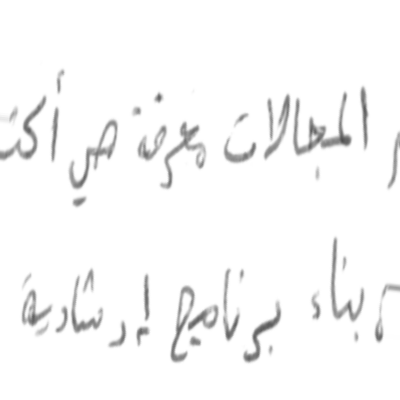 المجالات معرفة هي أكثر
بناء برنامج إرشادية